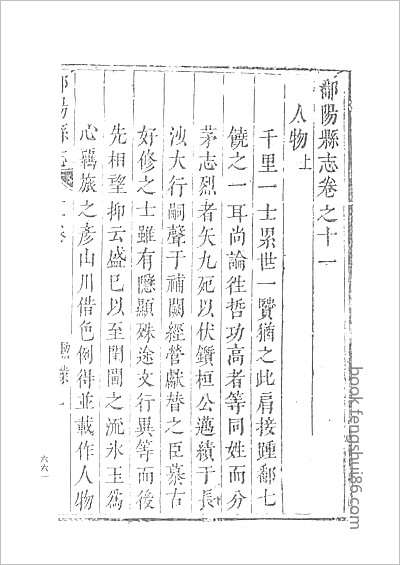 鄱陽縣志卷之十一
人物上
千里一士累世一賢猶之比肩接踵鄱七
饒之一耳尚論徃哲功高者等同姓而分
茅志烈者矢九死以伏鑕桓公邁績于長
沙大行嗣聲于補闕經營獻替之臣慕古
好修之士雖有隱顯殊途文行異等而後
先相望抑云盛已以至閨閫之流氷玉為
心羈旅之彥山川借色例得並載作人物
鄱陽縣志
卷
一
六六一
book.fengshui86.com